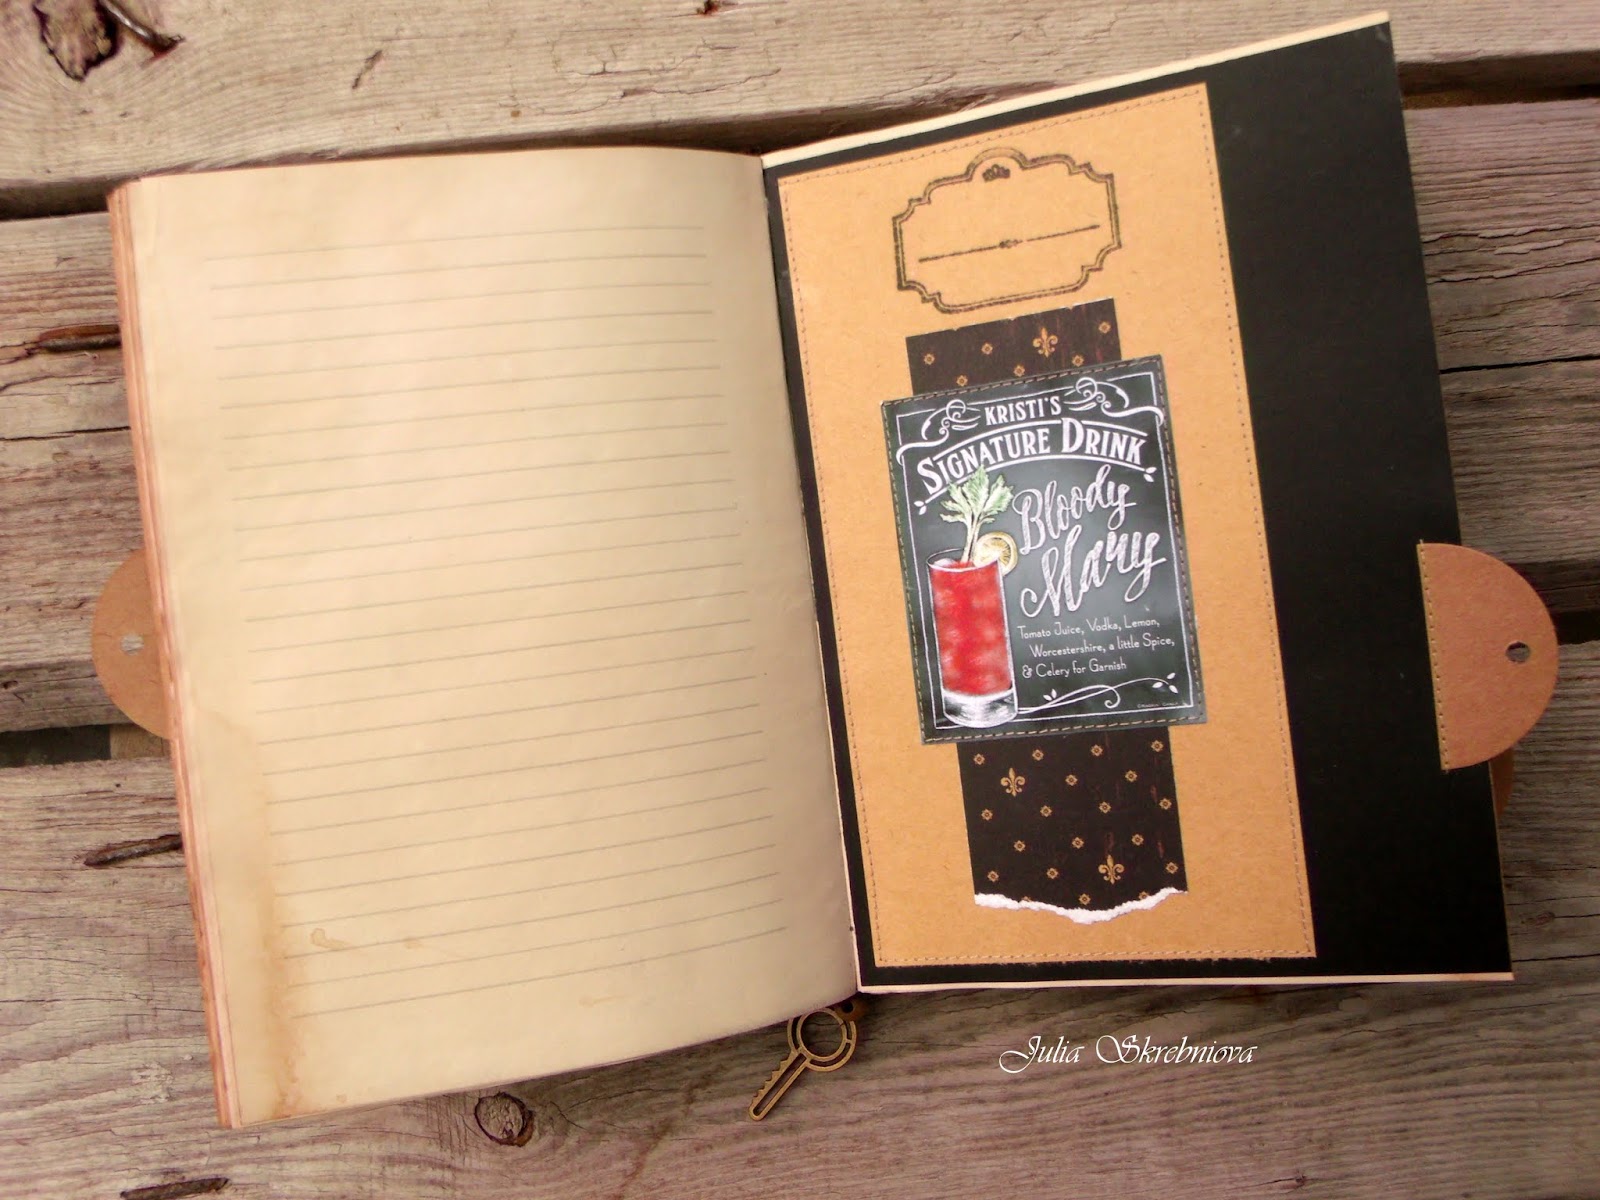 KRISTI'S
SIGNATURE DRINK
Bloody
Mary
Tomato Juice, Vodka, Lemon,
Worcestershire, a little Spice,
& Celery for Garnish
Julia Skrebniova